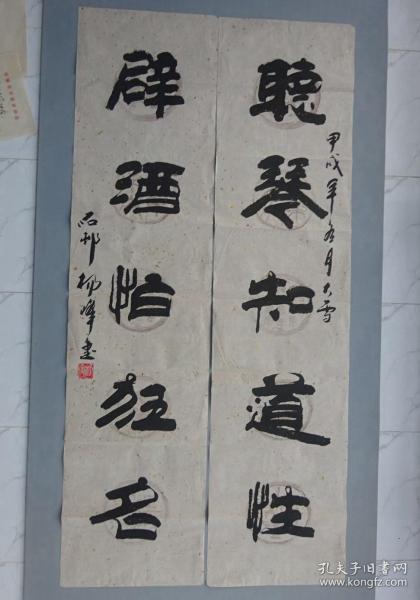 聽琴知道性
甲戌年
月大雪
辟酒怕狂名
石邨楊峰書
孔夫子旧书网
www.kongfz.com